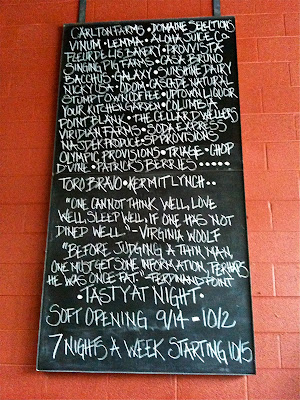 CARLTON FARMS • DOMAINE SELECTIONS
VINUM • LEMMA • ALOHA JUICE CO.
FLEUR DE LIS BAKERY • PROVVISTA
SINGING PIG FARMS • CASA BRUNO
BACCHUS • GALAXY • SUNSHINE DAIRY
NICKY USA • ODOM • CASCADE NATURAL
STUMPTOWN COFFEE • UPTOWN LIQUOR
YOUR KITCHEN GARDEN • COLUMBIA
POINT BLANK • THE CELLAR DWELLERS
VIRIDIAN FARMS • SODA EXPRESS
NAJDEK PRODUCE • SP PROVISIONS
OLYMPIC PROVISIONS • TRIAGE • CHOP
D'VINE • PATRICKS BERRIES • • • • •
TORO BRAVO • KERMIT LYNCH • •
"ONE CANNOT THINK WELL, LOVE
WELL, SLEEP WELL, IF ONE HAS NOT
DINED WELL." - VIRGINIA WOOLF
"BEFORE JUDGING A THIN MAN,
ONE MUST GET SOME INFORMATION, PERHAPS
HE WAS ONCE FAT." - FERDINAND POINT
• TASTY AT NIGHT •
SOFT OPENING 9/14 - 10/2
7 NIGHTS A WEEK STARTING 10/5